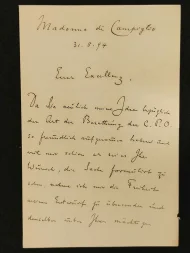 Madonna di Campiglio
21.8.94
Euer Excellenz,
Da Sie neulich meine Ideen bezüglich
der Art der Besetzung des C.P.O
so freundlich aufgenommen haben und
mir nun schon es sei Ihr
Wunsch, der Sache formulirt zu
sehen nehme ich mir die Freiheit
meinen Entwurf zu übersenden und
denselben unter Ihren mächtigen